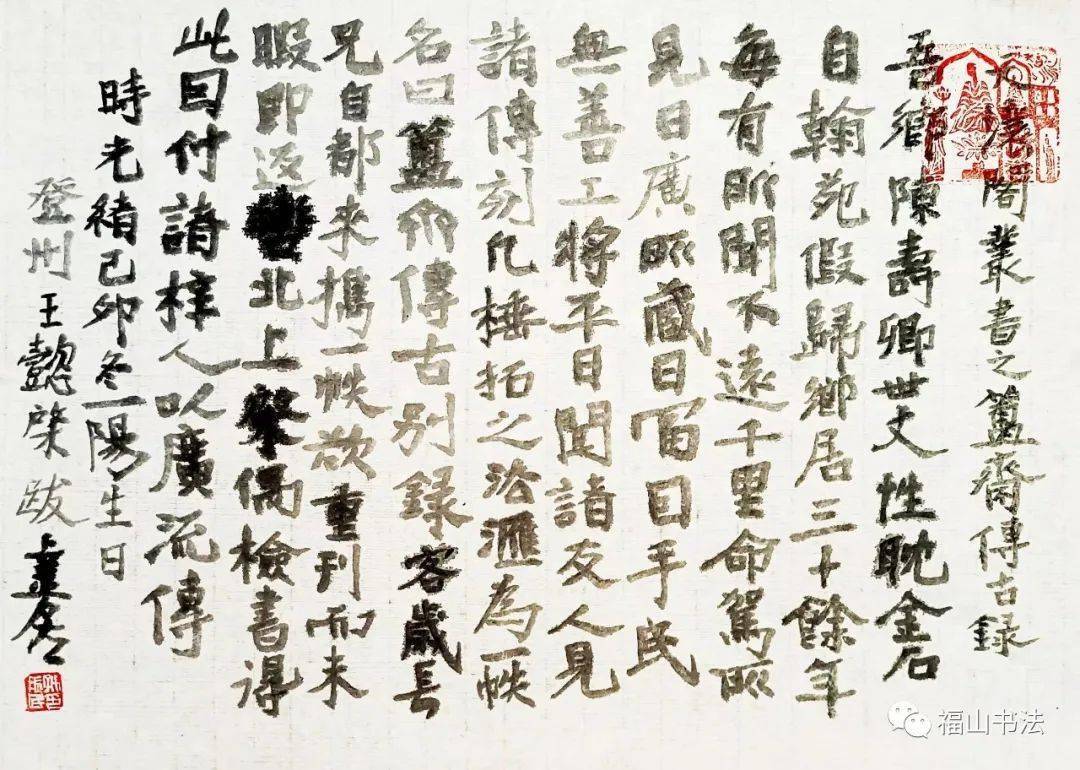 閣叢書之簠齋傳古録
吾鄉陳壽卿世丈性耽金石
自翰苑假歸鄉居三十餘年
每有所聞不遠千里命駕所
見日廣所藏日富因手民
無善工將平日閲諸友人見
諸傳刻凡棰拓之法滙為一帙
名曰簠齋傳古别録客歲長
兄自都來攜一帙欲重刊而未
暇即返北上檢書得
此因付諸梓人以廣流傳
時光緒己卯冬一陽生日
登州王懿榮跋
福山书法